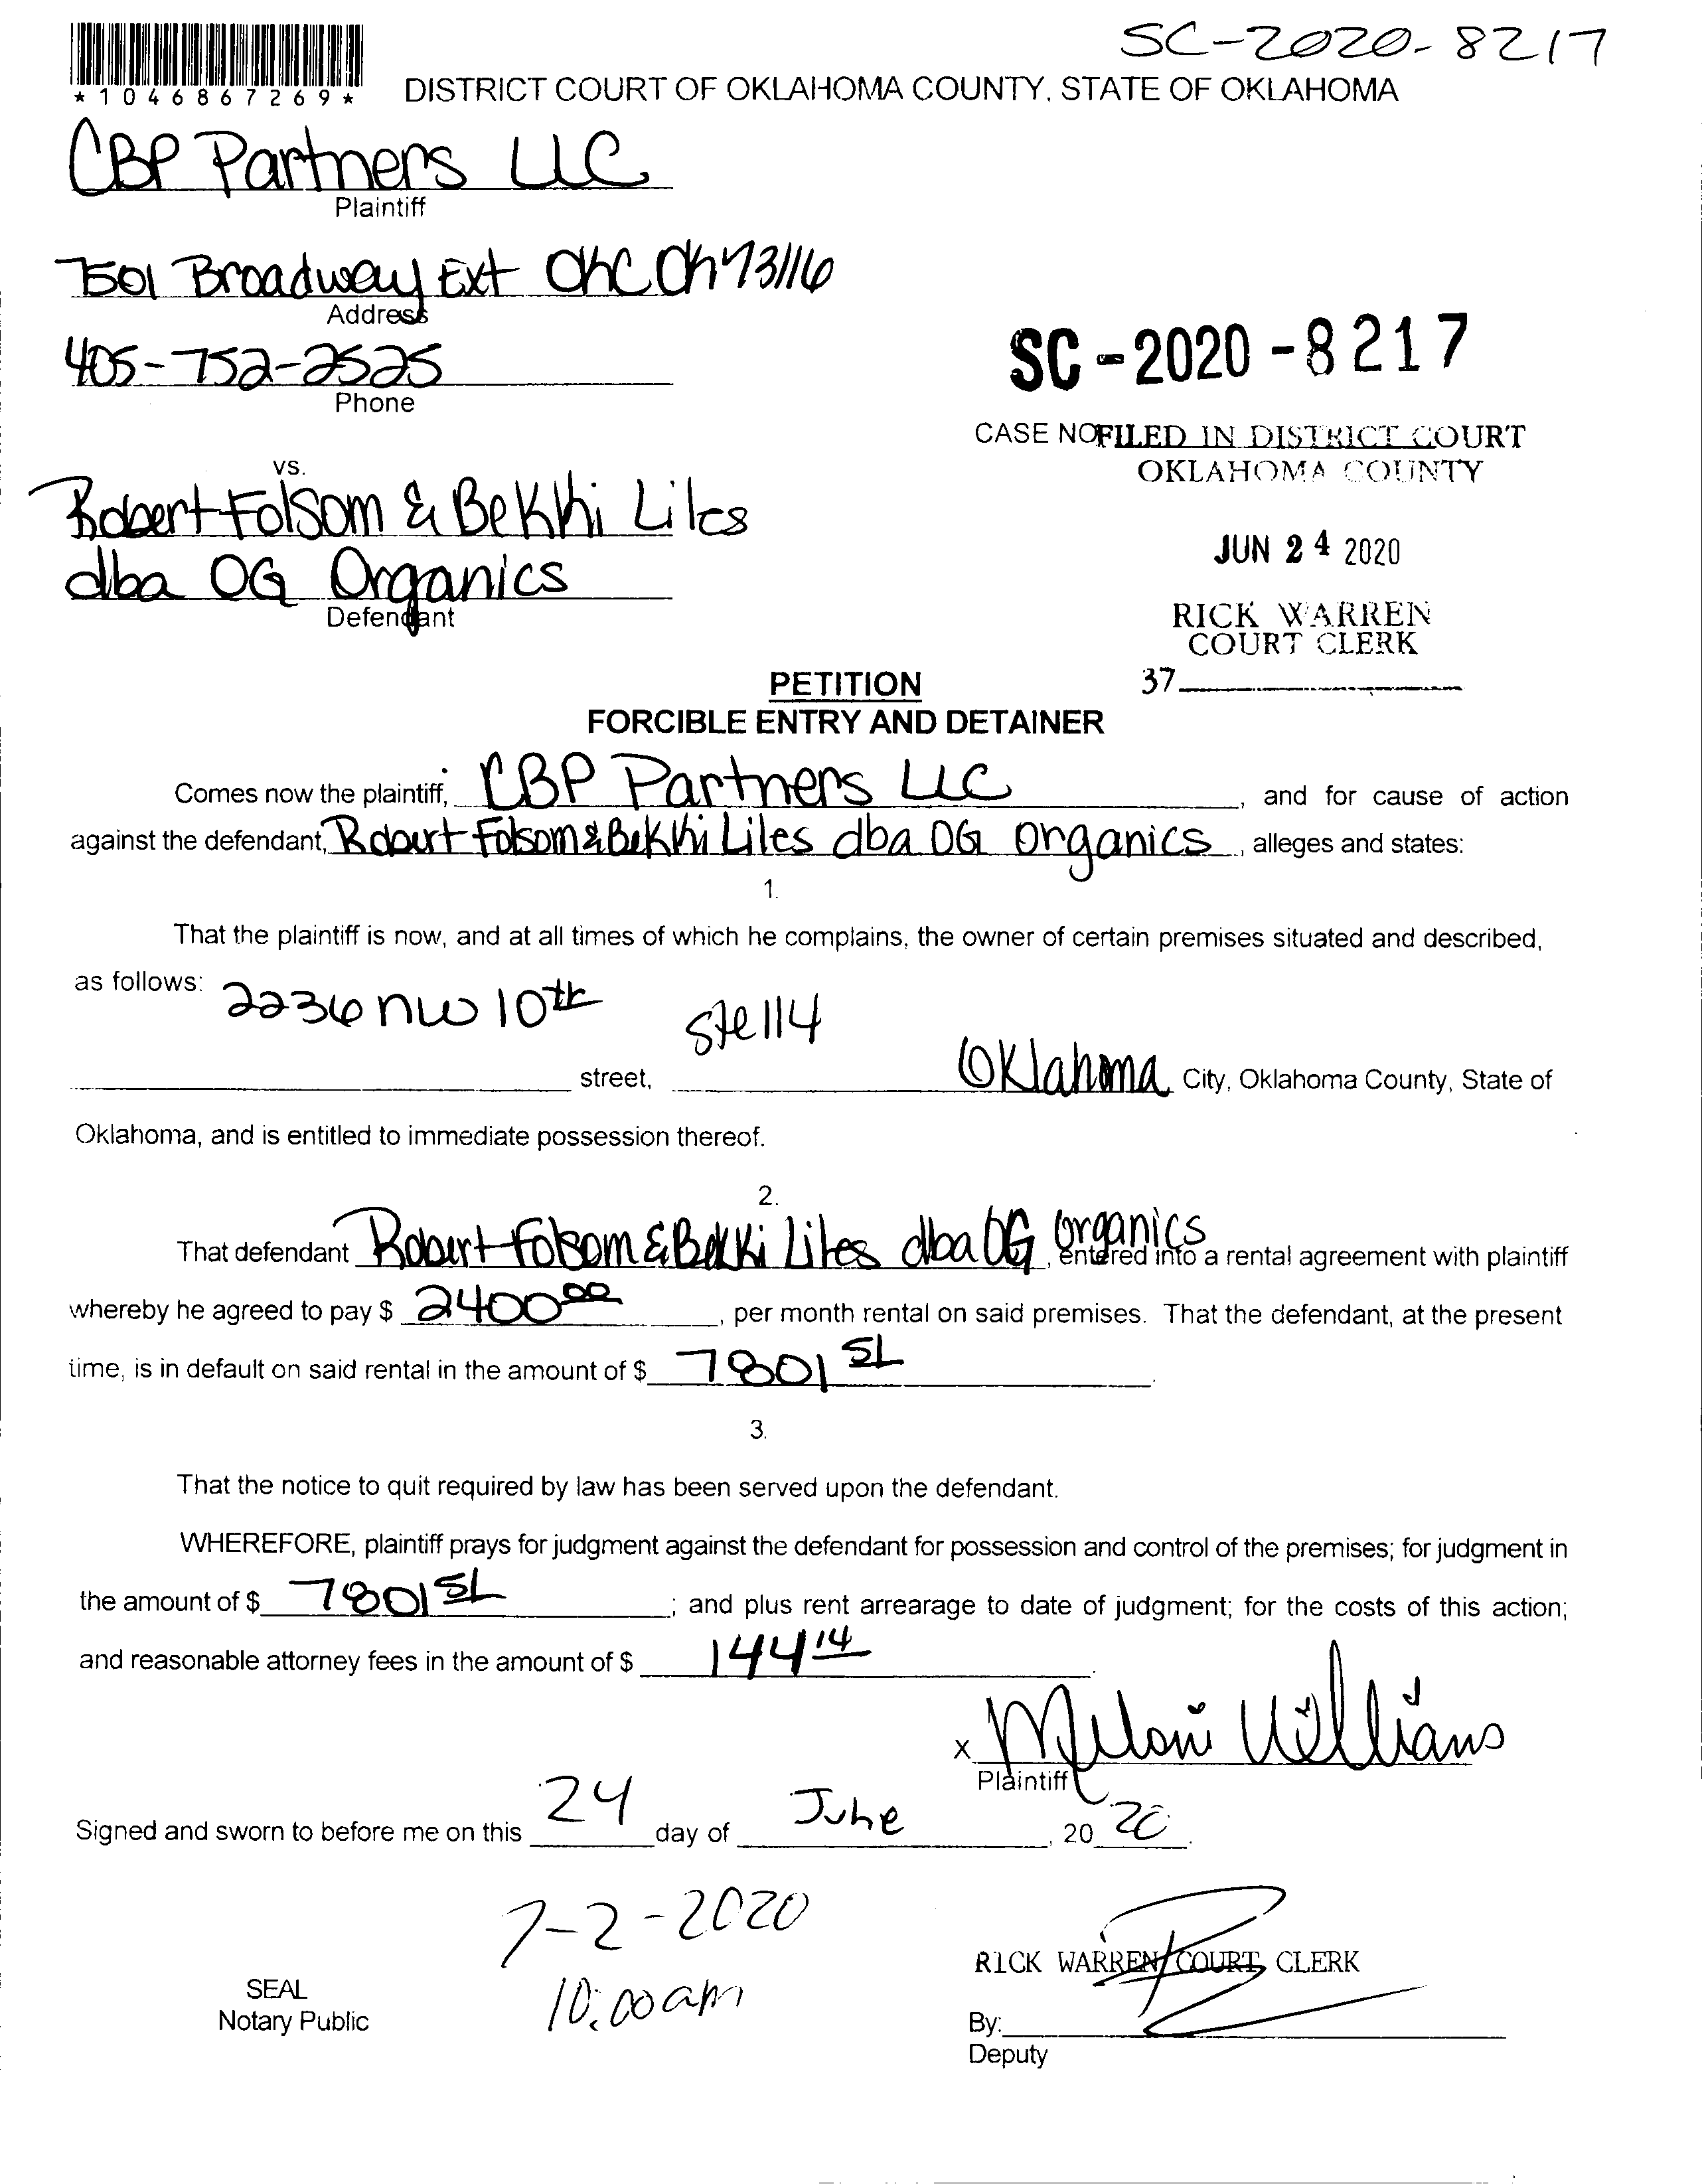 SC-2020-8217
*1046867269*
DISTRICT COURT OF OKLAHOMA COUNTY, STATE OF OKLAHOMA
CBP Partners LLC
Plaintiff
7501 Broadway Ext OKC OK 73116
Address
405-752-2525
Phone
SC-2020-8217
CASE NO FILED IN DISTRICT COURT
OKLAHOMA COUNTY
vs.
Robert Folsom & Bekhi Liles
dba OG Organics
Defendant
JUN 24 2020
RICK WARREN
COURT CLERK
37
PETITION
FORCIBLE ENTRY AND DETAINER
Comes now the plaintiff, CBP Partners LLC, and for cause of action
against the defendant, Robert Folsom & Bekhi Liles dba OG Organics, alleges and states:
1.
That the plaintiff is now, and at all times of which he complains, the owner of certain premises situated and described,
as follows: 2236 NW 10th ste 114
street, Oklahoma City, Oklahoma County, State of
Oklahoma, and is entitled to immediate possession thereof.
2.
That defendant Robert Folsom & Bekki Liles dba OG Organics, entered into a rental agreement with plaintiff
whereby he agreed to pay $ 2400 00, per month rental on said premises. That the defendant, at the present
time, is in default on said rental in the amount of $ 7801
3.
That the notice to quit required by law has been served upon the defendant.
WHEREFORE, plaintiff prays for judgment against the defendant for possession and control of the premises; for judgment in
the amount of $ 7801; and plus rent arrearage to date of judgment; for the costs of this action;
and reasonable attorney fees in the amount of $ 144 14.
x Meloni Williams
Plaintiff
Signed and sworn to before me on this 24 day of June, 2020.
7-2-2020
10:00am
SEAL
Notary Public
RICK WARREN, COURT CLERK
By:
Deputy